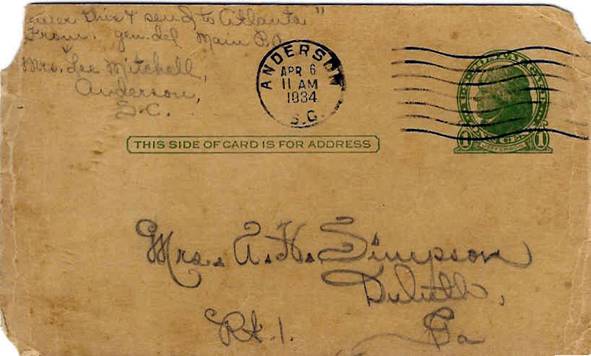 this & send to Atlanta"
From: gen. del Main P.O.
Mrs. Lee Mitchell,
Anderson,
S.C.
ANDERSON
APR 6
11 AM
1934
S.C.
THIS SIDE OF CARD IS FOR ADDRESS
1 1
JEFFERSON
Mrs. A. H. Simpson
Duluth,
Rt. 1. Ga